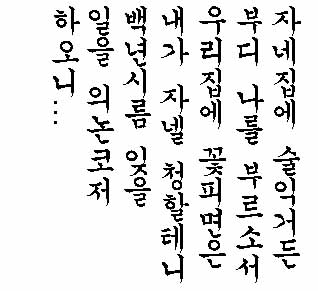 자네집에 술익거든
부디 나를 부르소서
우리집에 꽃피면은
내가 자넬 청할테니
백년시름 잊을
일을 의논코저
하오니...